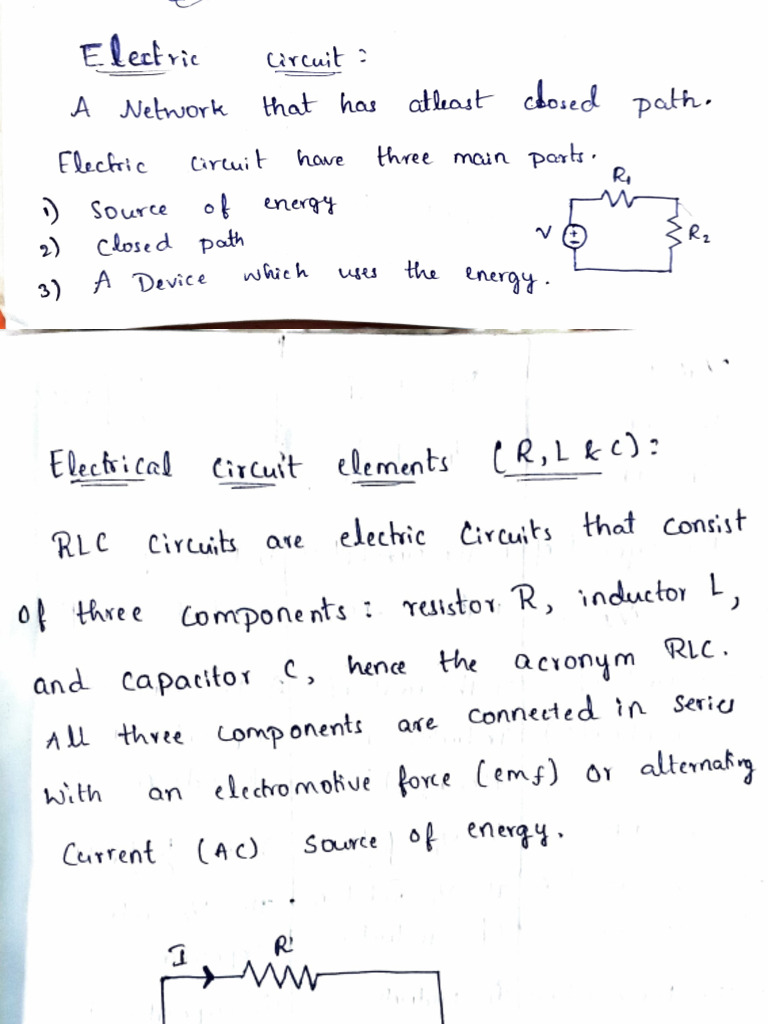 Electric circuit :
A Network that has atleast closed path.
Electric circuit have three main parts.
R1
1) Source of energy
V
+
-
R2
2) Closed path
3) A Device which uses the energy.
Electrical circuit elements (R, L & C) :
RLC Circuits are electric Circuits that consist
of three components : resistor R, inductor L,
and capacitor C, hence the acronym RLC.
All three components are connected in series
with an electromotive force (emf) or alternating
Current (AC) Source of energy.
I R